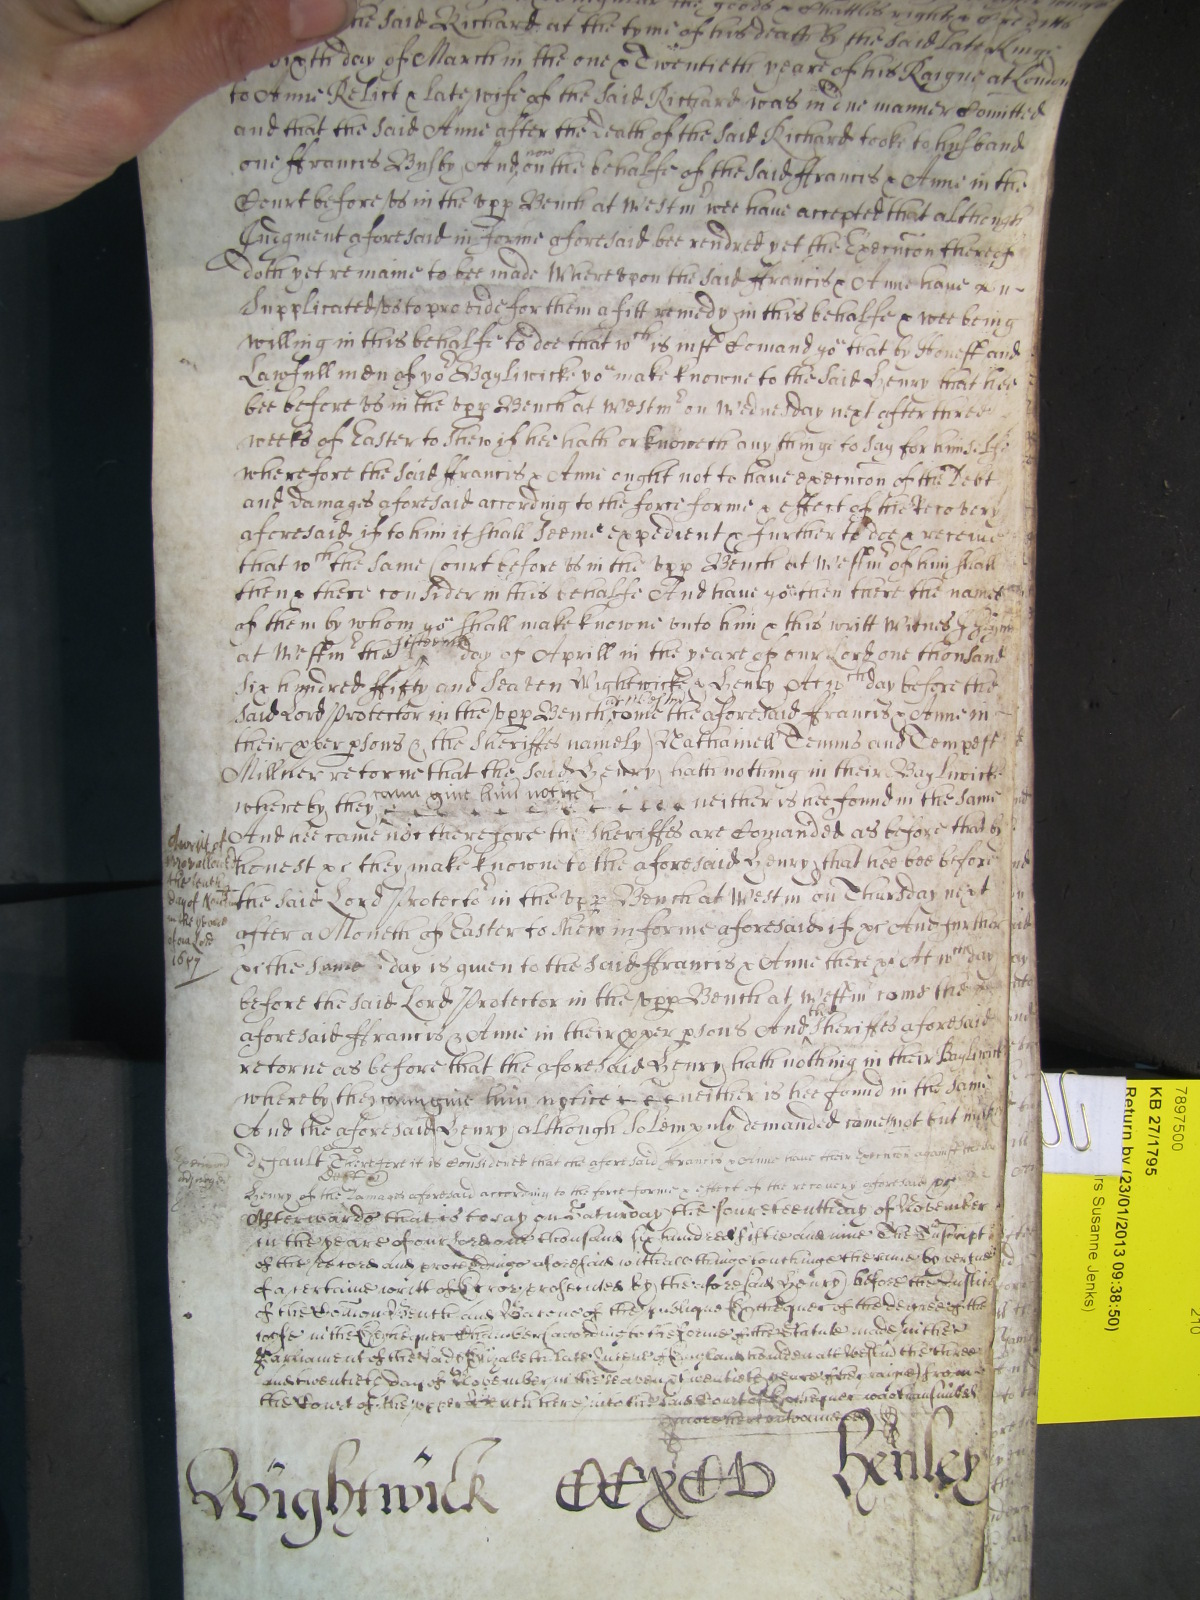 the goods & Chattles rights & Creditts
the said Richard at the tyme of his death by the said late Kinge
sixth day of March in the one & Twentieth yeare of his Raigne at London
to Anne Relict & late wife of the said Richard was in due manner Comitted
and that the said Anne after the Death of the said Richard tooke to husband
one ffrancis Bysby And now on the behalfe of the said ffrancis & Anne in the
Court before us in the upp Bench at Westmr wee have accepted that although
Judgment aforesaid in forme aforesaid bee rendred yet the Execucon thereof
doth yet remaine to bee made Whereupon the said ffrancis & Anne have
Supplicated us to provide for them a fitt remedy in this behalfe & wee being
willing in this behalfe to doe that wch is just Comand you that by Honest and
Lawfull men of yor Bayliwicke you make knowne to the said Henry that hee
bee before us in the upp Bench at Westmr on Wednesday next after three
weeks of Easter to shew if hee hath or knoweth any thinge to say for himselfe
wherefore the said ffrancis & Anne ought not to have execucon of the Debt
and Damages aforesaid according to the force forme & effect of the Recovery
aforesaid if to him it shall seeme expedient & further to doe & receive
that wch the same Court before us in the upp Bench at Westmr of him shall
then & there consider in this behalfe And have you then there the names
of them by whom you shall make knowne unto him & this writt Witnes
at Westmr the day of Aprill in the yeare of our Lord one thousand
six hundred ffifty and seaven Wightwicke & Henley At wch day before the
said Lord Protector in the upp Bench come the aforesaid ffrancis & Anne in
their pper psons & the Sheriffes namely Nathaniell Temms and Tempest
Millner retorne that the said Henry hath nothing in their Bayliwicke
whereby they cann give him notice neither is hee found in the same
And hee came not therefore the Sheriffes are Comanded as before that by
honest &c they make knowne to the aforesaid Henry that hee bee before
the said Lord Protector in the upp Bench at Westmr on Thursday next
after a Moneth of Easter to shew in forme aforesaid if &c And further
&c the same day is given to the said ffrancis & Anne there &c At wch day
before the said Lord Protector in the upp Bench at Westmr come the
aforesaid ffrancis & Anne in their pper psons And the Sheriffes aforesaid
retorne as before that the aforesaid Henry hath nothing in their Bayliwick
whereby they cann give him notice neither is hee found in the same
And the aforesaid Henry although solemnly demanded came not but made
default Therefore it is Considered that the aforesaid ffrancis & Anne have their Execucon against the said
Henry of the Damages aforesaid according to the force forme & effect of the recovery aforesaid &c
Afterwards that is to say on Saturday the fourteenth day of November
in the yeare of our Lord one thousand six hundred fiftie and nine The Transcript
of the Record and proceedings aforesaid with all things touchinge the same by vertue
of a certaine writt of Error prosecuted by the aforesaid Henry before the Justices
of the Comon Bench and Barons of the publique Exchequer of the degree of the
coife in the Exchequer Chamber according to the forme of the Statute made in the
Parliament of the Lady Elizabeth late Queene of England holden at Westmr the three
and twentieth day of November in the seaven & twentieth yeare of her raigne from
the Court of the upper Bench here into the said Court of Exchequer was transmitted
A writt of
Error allowed
the tenth
day of
in the yeare
of our Lord
1657
Wightwick Henley
7897500
KB 27/1795
Return by (23/01/2013 09:38:50)
rs Susanne Jenks)
210